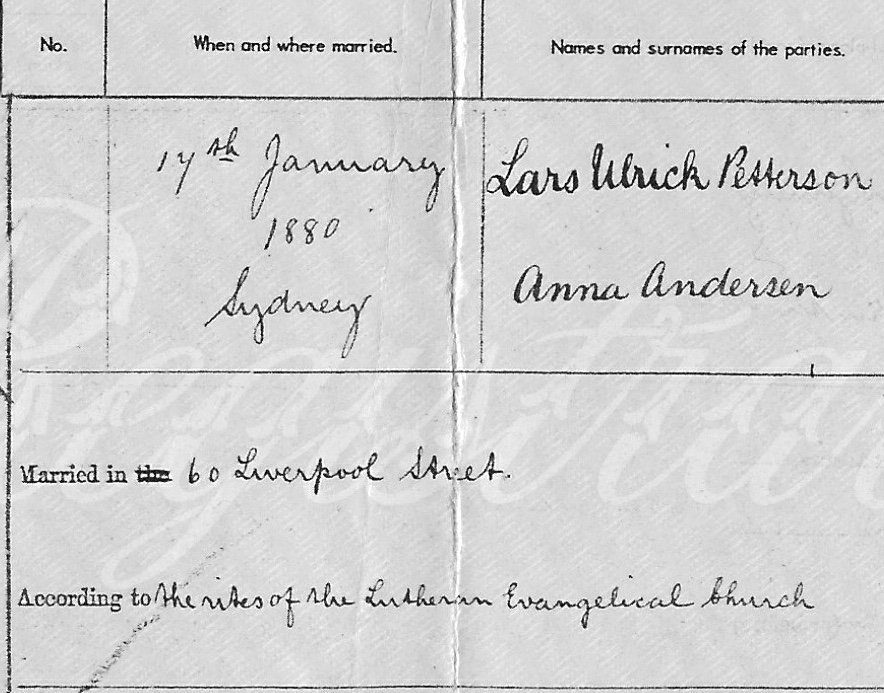 No.
When and where married.
Names and surnames of the parties.
17th January
1880
Sydney
Lars Ulrick Petterson
Anna Andersen
Married in the 60 Liverpool Street.
According to the rites of the Lutheran Evangelical Church